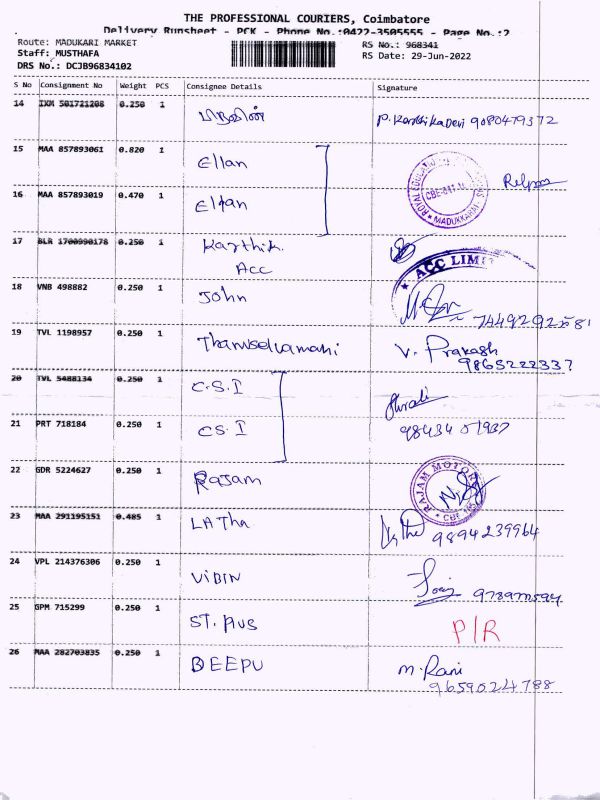 THE PROFESSIONAL COURIERS, Coimbatore
Delivery Runsheet - PCK - Phone No.:0422-3505555 - Page No.:2
Route: MADUKARI MARKET RS No.: 968341
Staff: MUSTHAFA RS Date: 29-Jun-2022
DRS No.: DCJB96834102
S No Consignment No Weight PCS Consignee Details Signature
14 IXM 501721208 0.250 1 P. Karthika Devi 9080479372
15 MAA 857893061 0.820 1 Ellan
16 MAA 857893019 0.470 1 Elfan
MADUKKARAI
17 BLR 1700990178 0.250 1 Karthik.
Acc
ACC LIM
18 VNB 498882 0.250 1 John
19 TVL 1198957 0.250 1 Thamuselvamani V. Prakash
9865222337
20 TVL 5488134 0.250 1 C.S.I
21 PRT 718184 0.250 1 CS.I 98434 01937
22 GDR 5224627 0.250 1 Rajam
RAJAM MOTORS
23 MAA 291195151 0.485 1 LATha 9894239964
24 VPL 214376306 0.250 1 ViBiN
25 GPM 715299 0.250 1 ST. Pius P/R
26 MAA 282703835 0.250 1 DEEPU M. Rani
9659024788